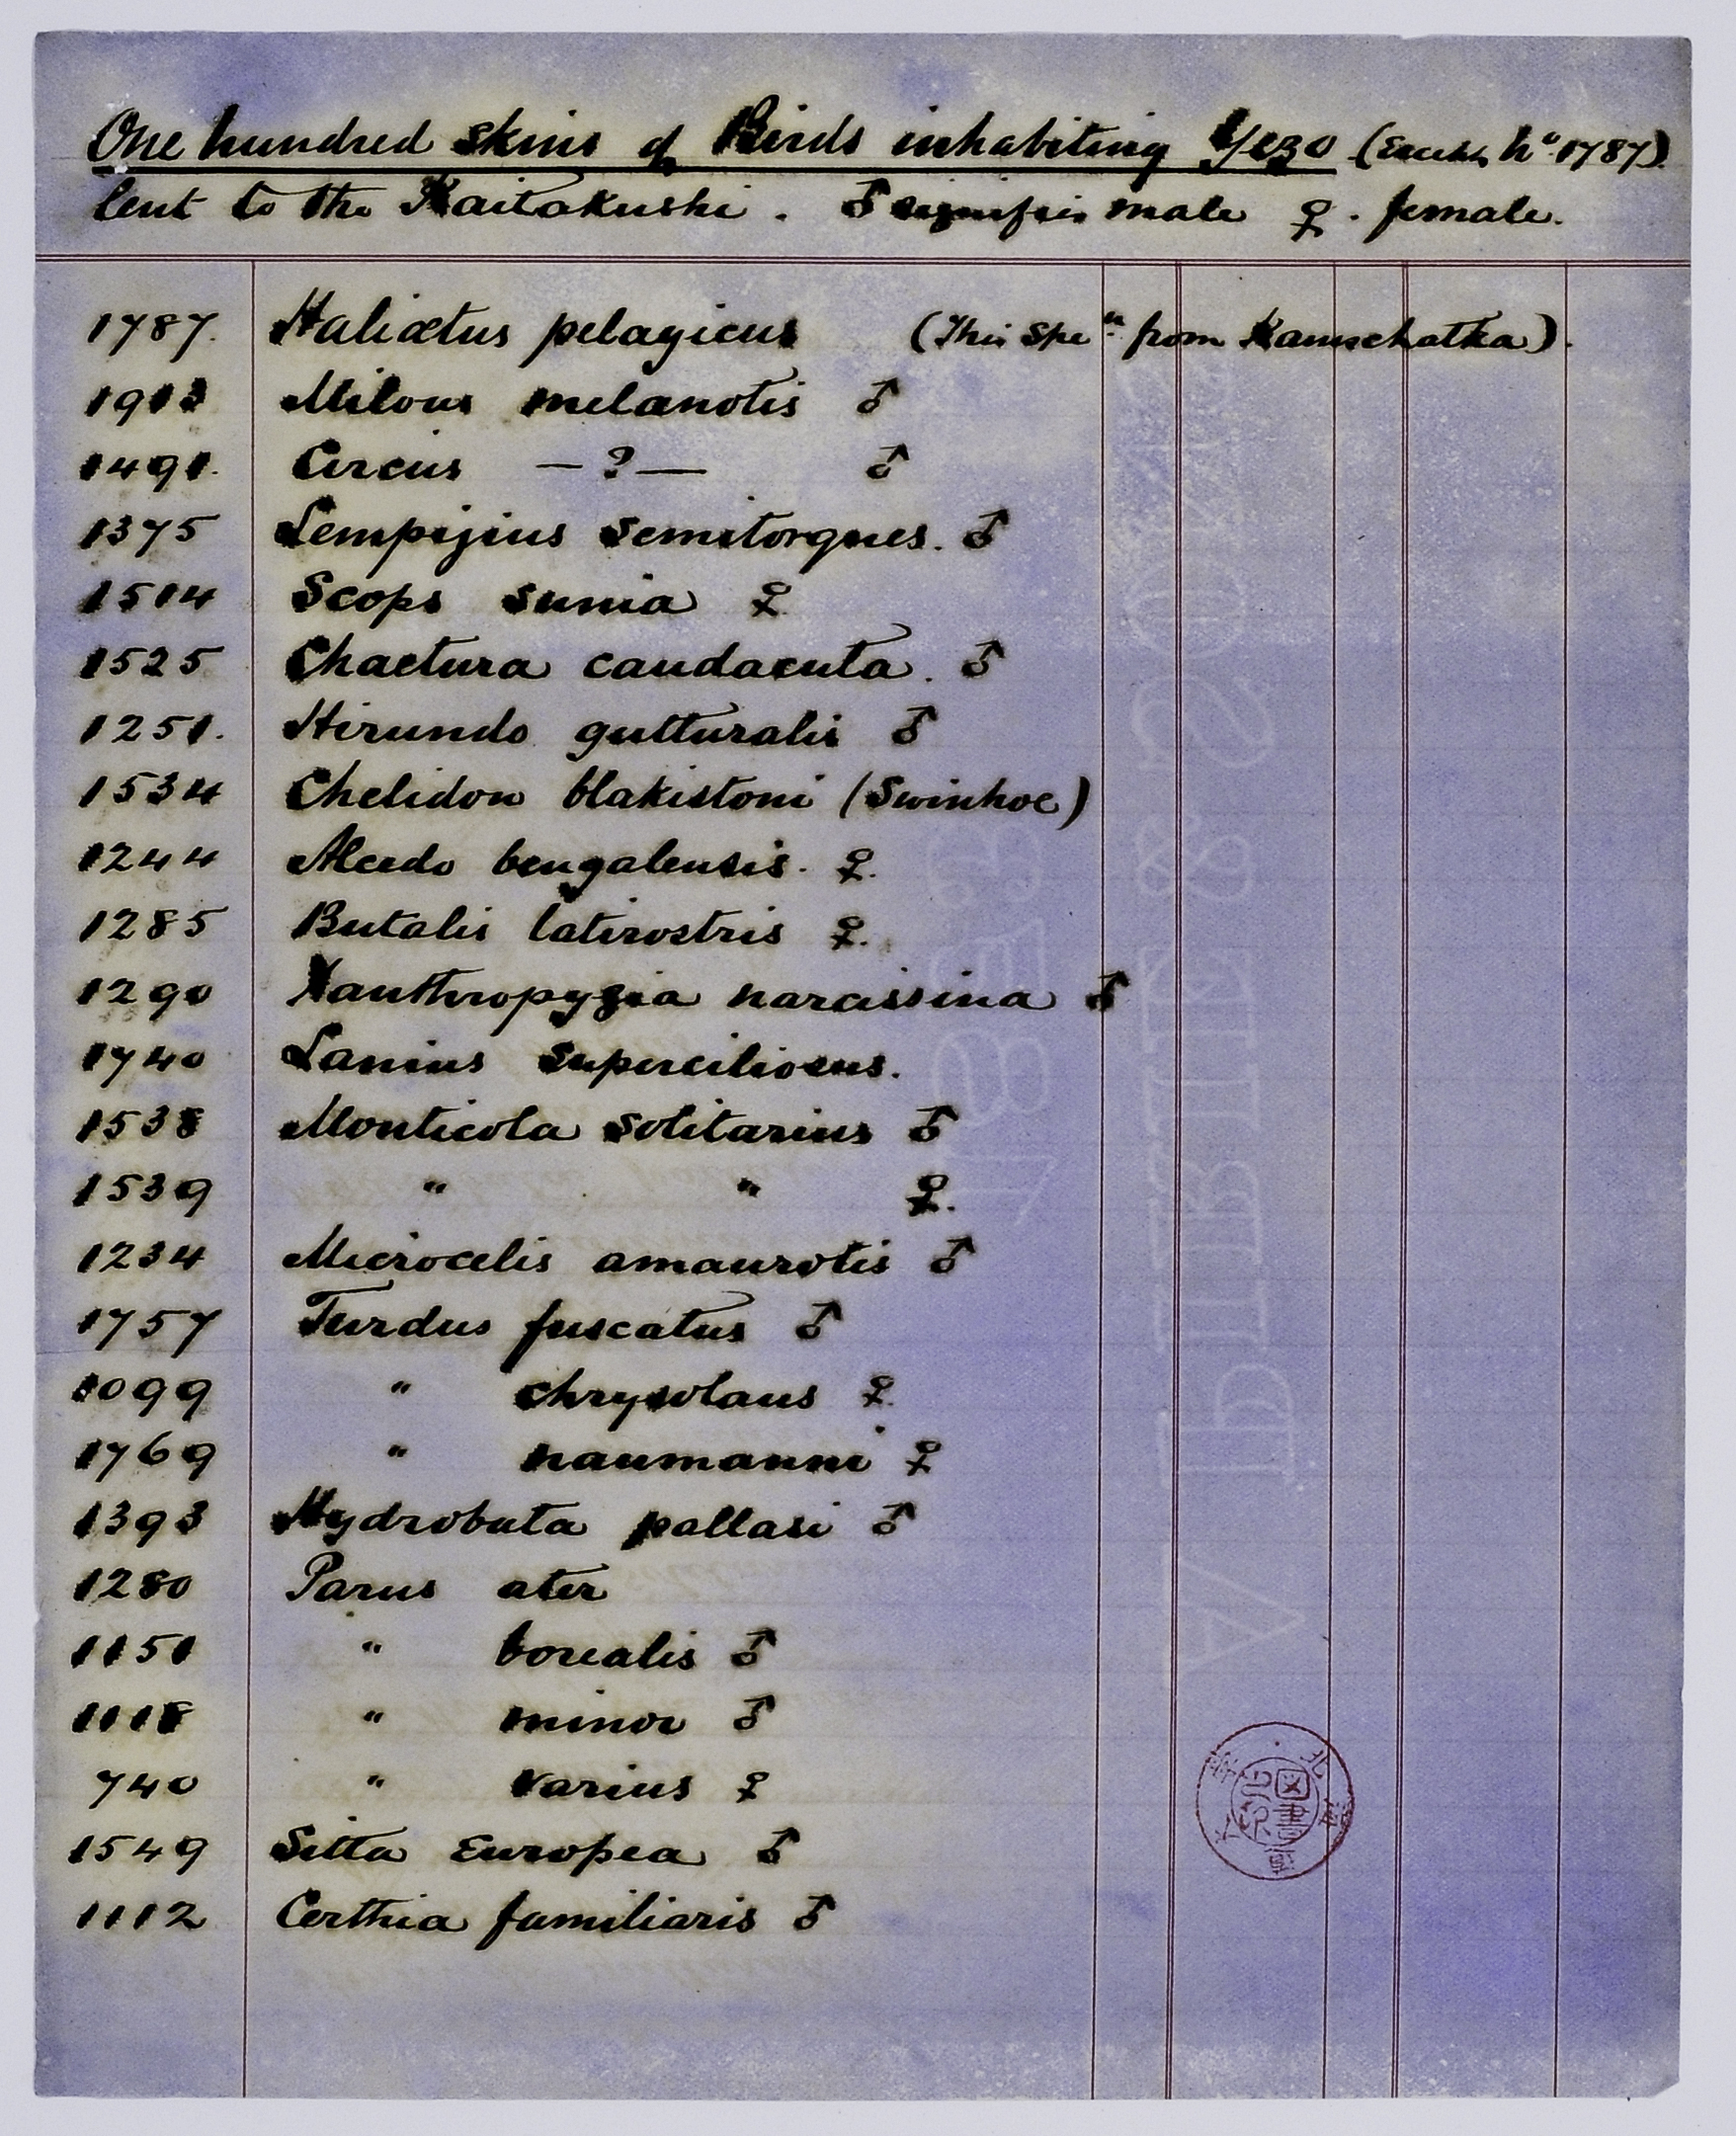 One hundred skins of Birds inhabiting Yezo (Except No 1787).
lent to the Kaitakushi. ♂ signifies male ♀. female.
1787. Haliætus pelagicus (This Spen from Kamschatka).
1913 Milvus melanotis ♂
1491. Circus —?— ♂
1375 Lempijius semitorques. ♂
1514 Scops sunia ♀
1525 Chaetura caudacuta. ♂
1251. Hirundo gutturalis ♂
1534 Chelidon blakistoni (Swinhoe)
1244 Alcedo bengalensis. ♀.
1285 Butalis latirostris ♀.
1290 Xanthropygia narcissina ♂
1740 Lanius superciliosus.
1538 Monticola solitarius ♂
1539 " " ♀.
1234 Microcelis amaurotis ♂
1757 Turdus fuscatus ♂
1099 " chrysolaus ♀.
1769 " naumanni ♀
1393 Hydrobata pallasi ♂
1280 Parus ater
1151 " borealis ♂
1118 " minor ♂
740 " varius ♀
1549 Sitta Europea ♂
1112 Certhia familiaris ♂
図書